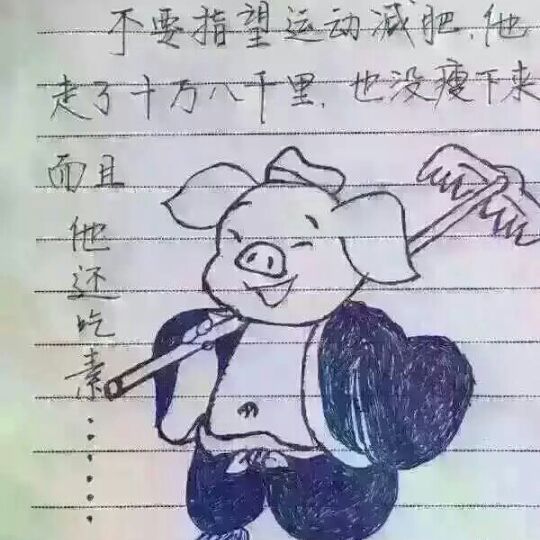 不要指望运动减肥.他
走了十万八千里.也没瘦下来
而且
他
还
吃
素
......